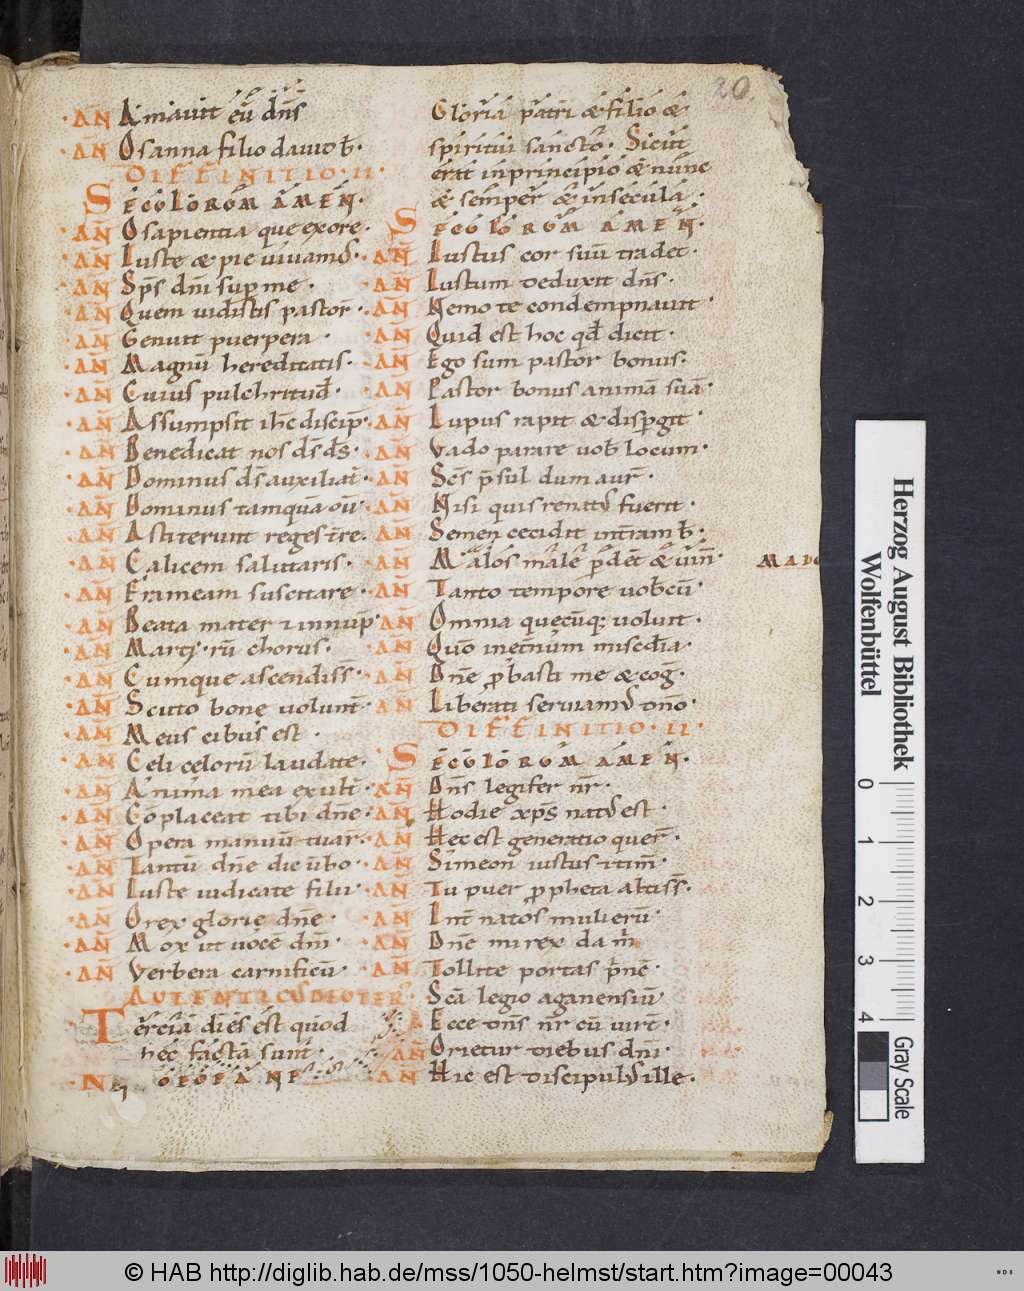 20.
·AN̄ Amauit eū dn̄s
·AN̄ Osanna filio dauid b̄.
DIFFINITIO·II·
SECOLORUM AMEN·
·AN̄ O sapientia que ex ore·
·AN̄ Iuste & pie uiuam᷒·
·AN̄ Sps̄ dn̄i sup me·
·AN̄ Quem uidistis pastor̄·
·AN̄ Genuit puerpera·
·AN̄ Magnū hereditatis·
·AN̄ Cuius pulchritud̄·
·AN̄ Assumpsit ih̄c discip̄·
·AN̄ Benedicat nos ds̄ ds̄·
·AN̄ Dominus ds̄ auxiliat̄·
·AN̄ Dominus tamquā ou̅·
·AN̄ Astiterunt reges t̄re·
·AN̄ Calicem salutaris·
·AN̄ Frameam suscitare·
·AN̄ Beata mater & innup̄
·AN̄ Martirū chorus·
·AN̄ Cumque ascendiss·
·AN̄ Scuto bonę volunt̄·
·AN̄ Meus cibus est·
·AN̄ Celi celorū laudate·
·AN̄ Anima mea exult̄·
·AN̄ Cōplaceat tibi dn̄e·
·AN̄ Opera manuū tuar̄·
·AN̄ Tantū dn̄e dic ūbo·
·AN̄ Iuste iudicate filii·
·AN̄ O rex glorię dn̄e·
·AN̄ Mox ut uocē dn̄i·
·AN̄ Verbera carnificū·
AUTENTICUS DEUTER᷒·
Tercia dies est quod
hec facta sunt·
Gloria patri & filio &
spiritui sancto· Sicut
erat in principio & nunc
& semper & in secula·
SECOLORUM AMEN·
·AN̄ Iustus cor suū tradet·
·AN̄ Iustum deduxit dn̄s·
·AN̄ Nemo te condempnauit·
·AN̄ Quid est hoc qd̄ dicit·
·AN̄ Ego sum pastor bonus·
·AN̄ Pastor bonus animā suā·
·AN̄ Lupus rapit & dispgit·
·AN̄ Vado parare uob̄ locum·
·AN̄ Scs̄ p̄sul dum aur̄·
·AN̄ Nisi quis renat᷒ fuerit·
·AN̄ Semen cecidit in t̄ram b̄·
·AN̄ Malos male p̄det & uin̄·
·AN̄ Tanto tempore uob̄cū·
·AN̄ Omnia quecūq; uoluit·
·AN̄ Quō in et̄num misc̄dia·
·AN̄ Dn̄e probasti me & coḡ·
·AN̄ Liberati seruiam᷒ dn̄o·
DIFFINITIO·II·
SECOLORUM AMEN·
·AN̄ Dn̄s legifer nr̄·
·AN̄ Hodie xp̄s nat᷒ est·
·AN̄ Hec est generatio quer̄·
·AN̄ Simeon iustus & tim̄·
·AN̄ Tu puer propheta altiss̄·
·AN̄ Int̄ natos mulierū·
·AN̄ Dn̄e mi rex da m̄
·AN̄ Tollite portas p̄nc̄·
Scā legio aganensiū
Ecce dn̄s nr̄ cū uirt̄·
·AN̄ Orietur diebus dn̄i·
·AN̄ Hic est discipul᷒ ille·
Herzog August Bibliothek
Wolfenbüttel
0 1 2 3 4
Gray Scale
© HAB http://diglib.hab.de/mss/1050-helmst/start.htm?image=00043